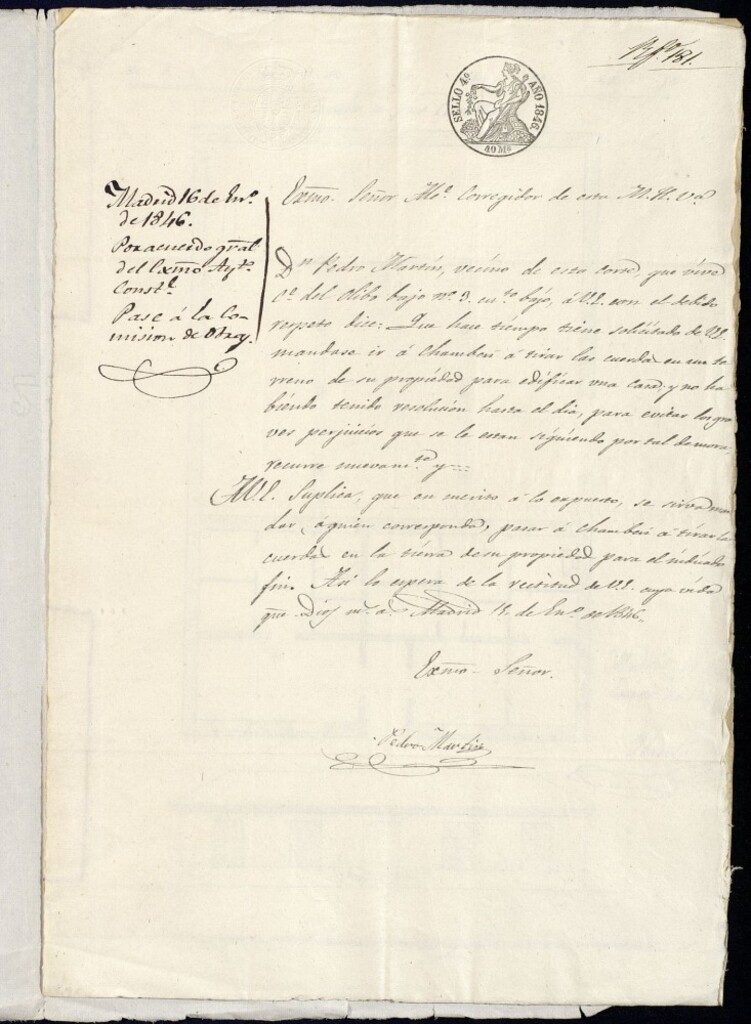 Rº 181.
SELLO 4º AÑO 1846.
40 Ms
Madrid 16 de Enº.
de 1846.
Por acuerdo gral
del Exmo Aytº.
Constl.
Pase á la Co-
mision de Obras.
Exmo. Señor Alc. Corregidor de esta M. H. Va
Dn. Pedro Martin, vecino de esta corte, que vive
Ce. del Olibo bajo nº. 3. cuarto bajo, á V.E. con el debido
respeto dice: Que hace tiempo tiene solicitado de V.E.
mandase ir á Chamberi á tirar las cuerdas en un te
rreno de su propiedad para edificar una casa; y no ha
biendo tenido resolución hasta el dia, para evitar los gra
ves perjuicios que se le estan siguiendo por tal demora,
recurre nuevamte. y
A V.E. Suplica, que en merito á lo expuesto, se sirva man
dar, á quien corresponda, pasar á Chamberi á tirar la
cuerda en la tierra de su propiedad para el indicado
fin. Asi lo espera de la rectitud de V.E. cuya vida
gue. Dios ms. as. Madrid 15. de Enº. de 1846.
Exmo. Señor.
Pedro Martin